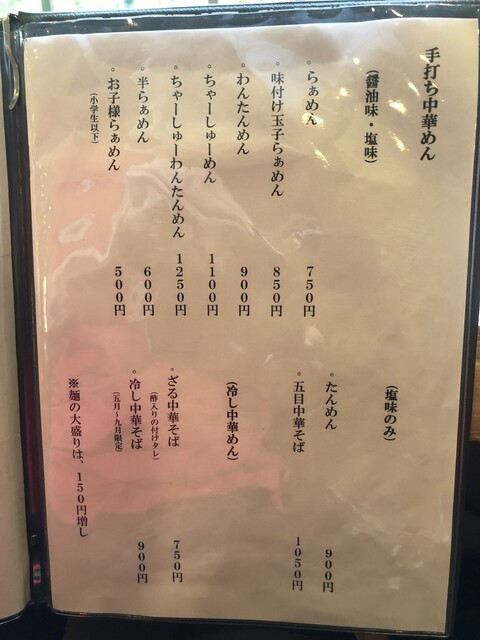 手打ち中華めん
(醤油味・塩味)
。らぁめん 750円
。味付け玉子らぁめん 850円
。わんたんめん 900円
。ちゃーしゅーめん 1100円
。ちゃーしゅーわんたんめん 1250円
。半らぁめん 600円
。お子様らぁめん 500円
(小学生以下)
(塩味のみ)
。たんめん 900円
。五目中華そば 1050円
(冷し中華めん)
。ざる中華そば 750円
(酢入りの付けタレ)
。冷し中華そば 900円
(五月〜九月限定)
※麺の大盛りは、150円増し